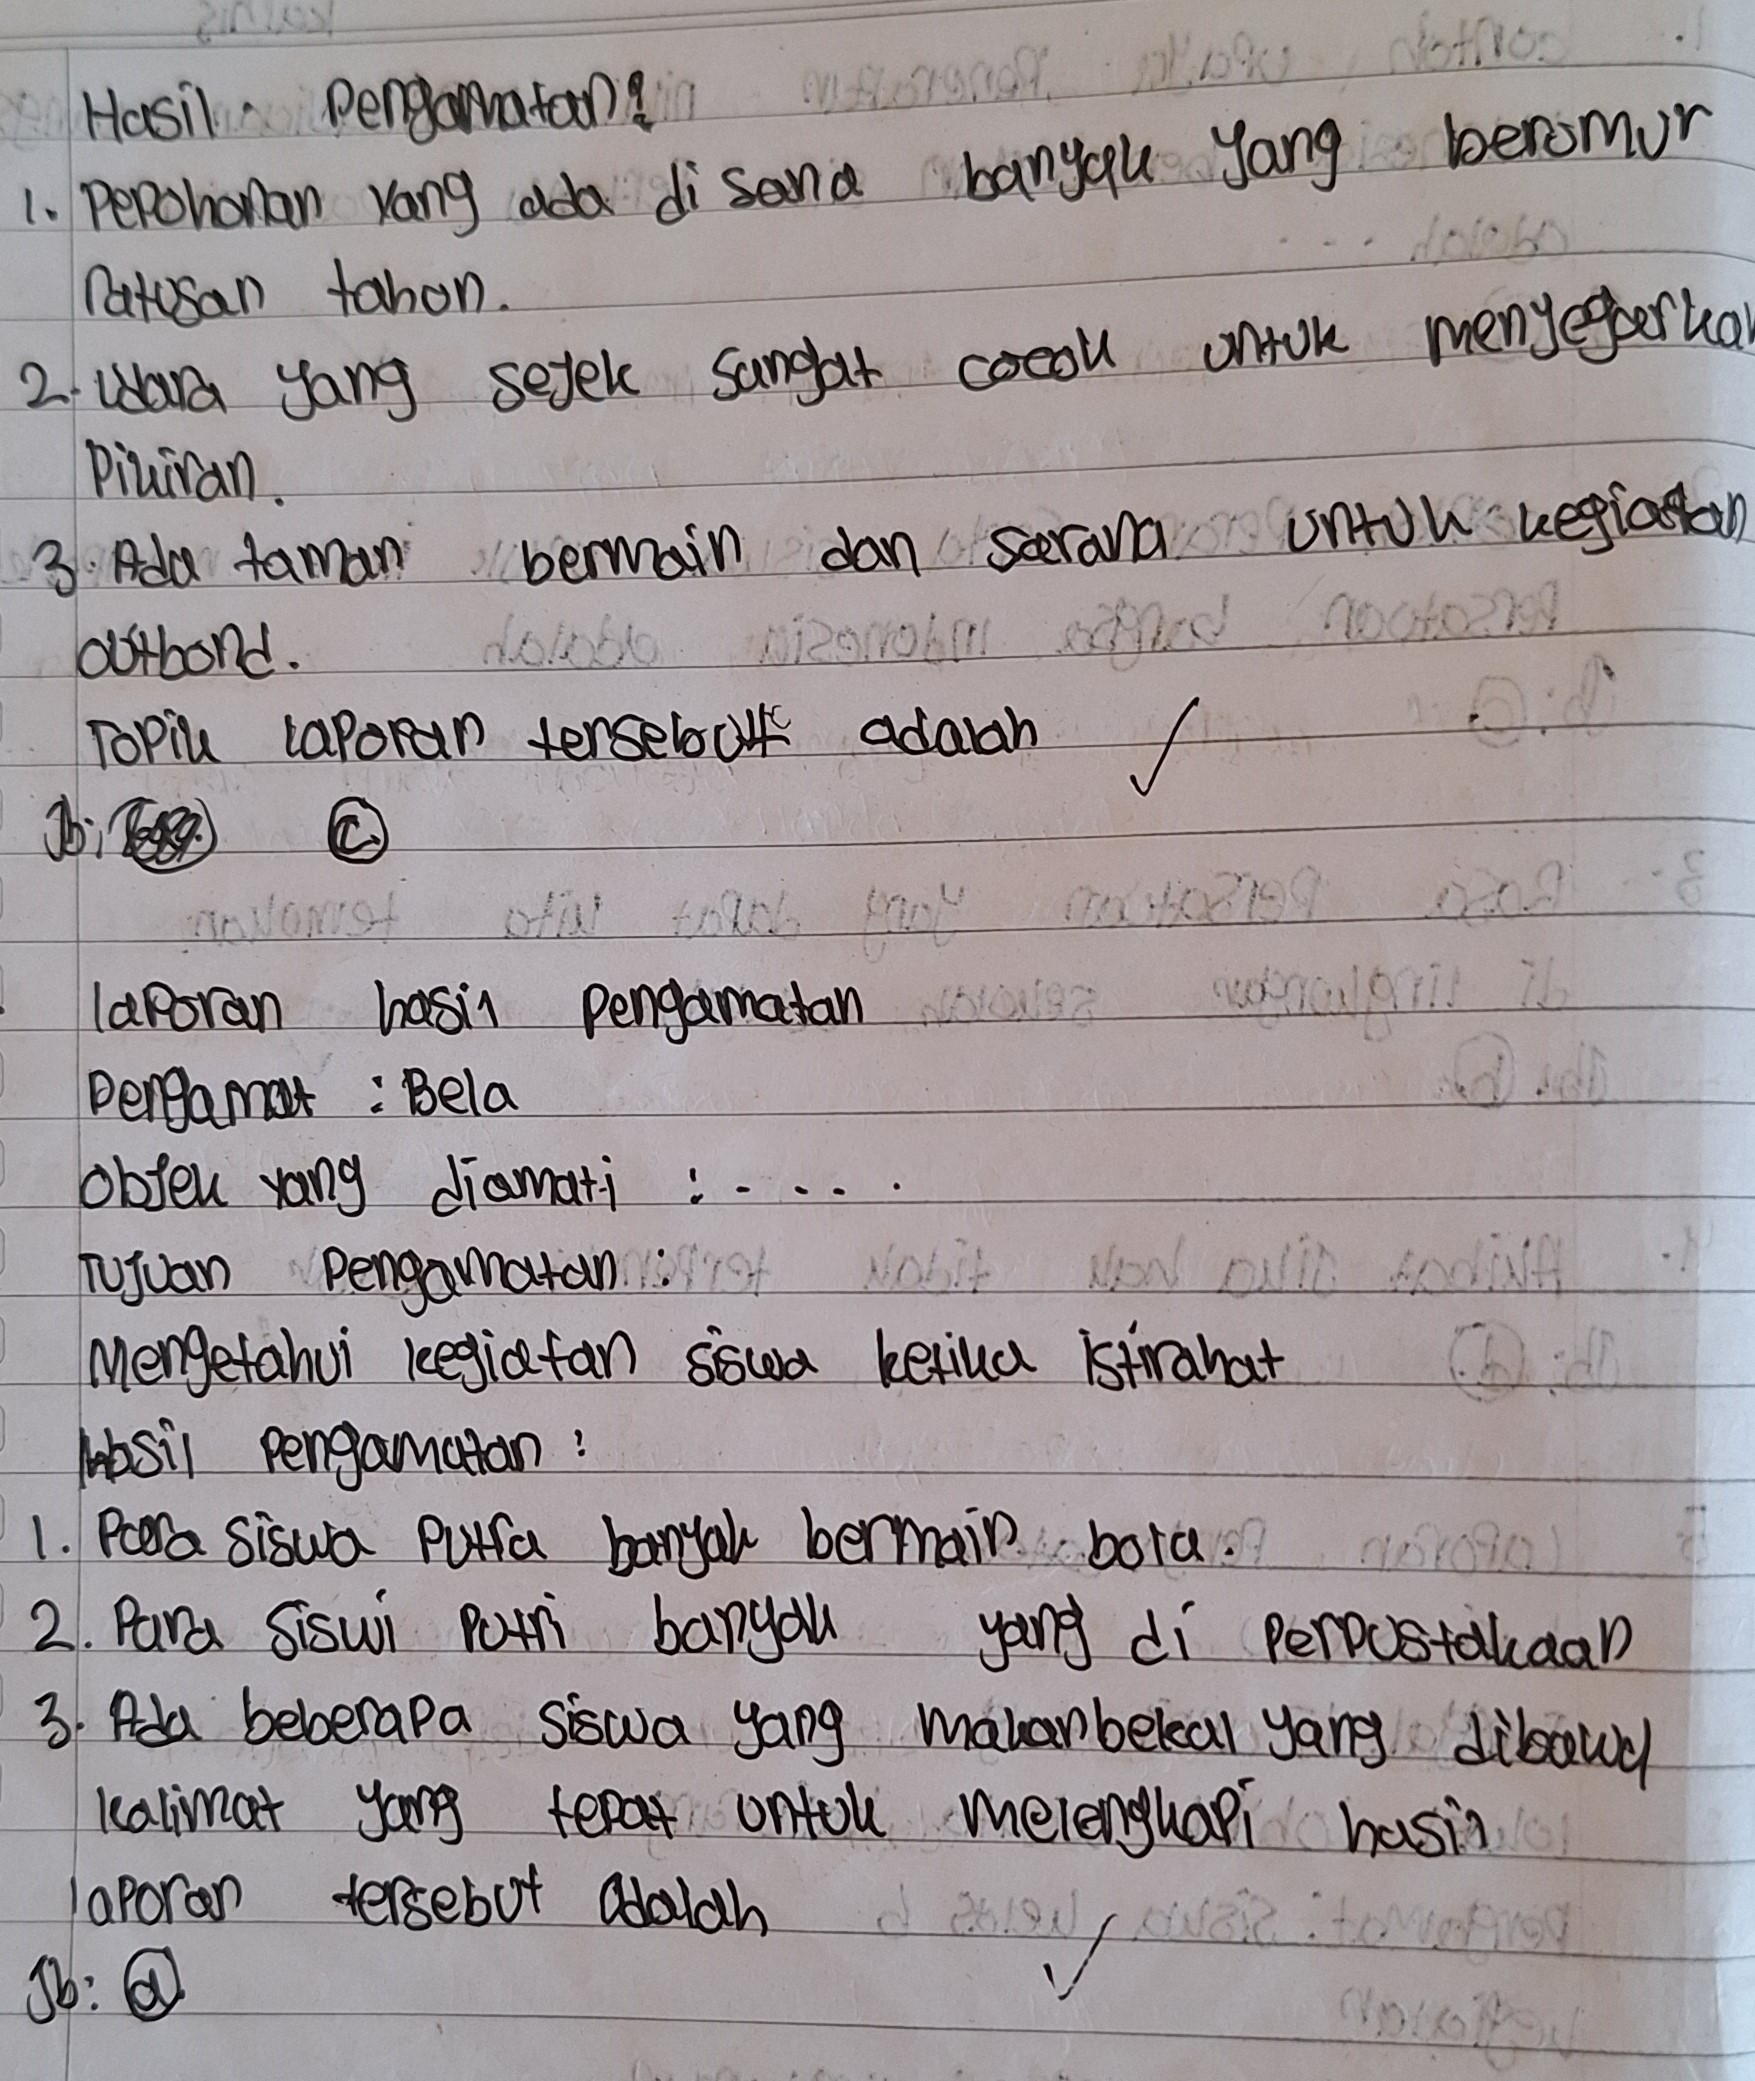 Hasil Pengamatan:
1. Pepohonan yang ada di sana banyak yang berumur
ratusan tahun.
2. Udara yang sejek sangat cocok untuk menyegarkan
Pikiran.
3. Ada taman bermain dan sarana untuk kegiatan
outbond.
Topik laporan tersebut adalah
Jb: C.
laporan hasil pengamatan
Pengamat : Bela
Objek yang diamati : ....
Tujuan Pengamatan :
Mengetahui kegiatan siswa ketika istirahat
Hasil pengamatan :
1. Para siswa putra banyak bermain bola.
2. Para siswi putri banyak yang di perpustakaan
3. Ada beberapa siswa yang makan bekal yang dibawa
kalimat yang tepat untuk melengkapi hasil
laporan tersebut adalah
Jb: a.